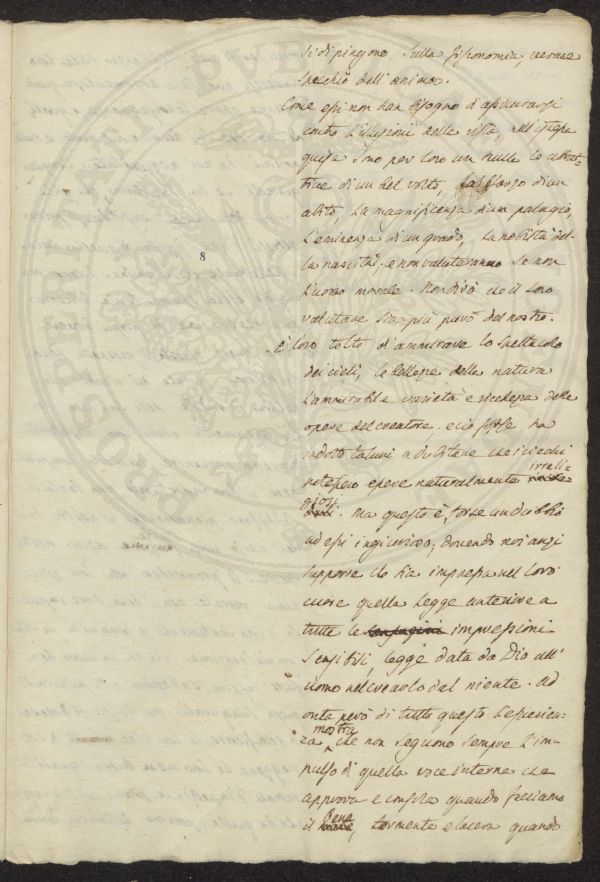 si dipingono sulla fisonomia, verace
specchio dell'anima.
Come essi non han bisogno d'assicurarsi
contro l'illusioni della vista, nell'istessa
guisa sono per loro un nulla le
di un bel volto, di un
abito, la magnificenza d'un palagio,
l'eminenza d'un grado, la nobiltà del-
la nascita, e non valuteranno se non
l'uomo morale. Non dirò che il loro
valutare sia più puro del nostro.
È loro tolto d'ammirare lo spettacolo
dei cieli, le bellezze della natura
l'ammirabile varietà e delle
opere del creatore. e ciò forse ha
indotto taluni a dubitare che i ciechi
potessero essere naturalmente irreli-
giosi. ma questo è forse un dubbio
ad essi ingiurioso, dovendo noi anzi
supporre che sia impressa nel loro
cuore quella legge anteriore a
tutte le impressioni
sensibili, legge data da Dio all'
uomo nel crearlo dal niente. Ad
onta però di tutto questo l'esperien-
za mostra che non seguono sempre l'im-
pulso di quella voce interna che
approva e consola quando facciamo
il bene, tormenta e lacera quando
8